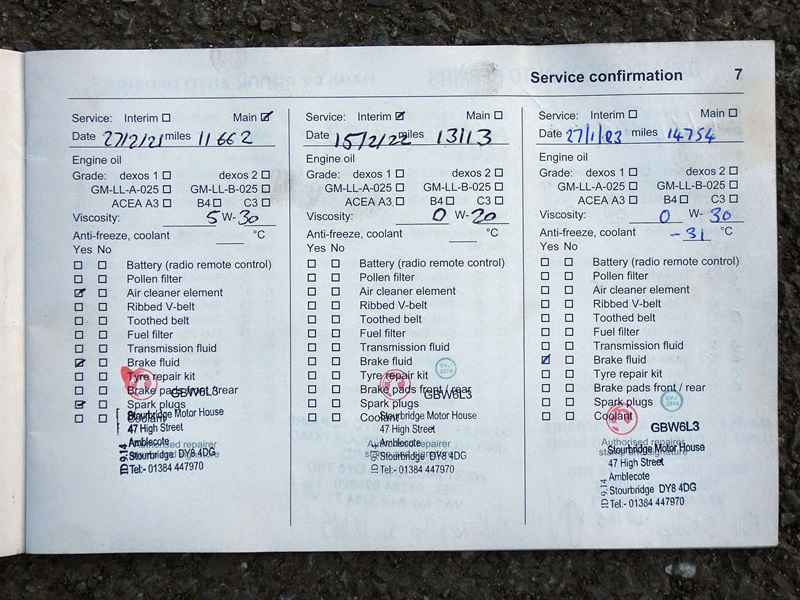 Service confirmation 7
Service: Interim Main
Date 27/2/21 miles 11662
Engine oil
Grade: dexos 1 dexos 2
GM-LL-A-025 GM-LL-B-025
ACEA A3 B4 C3
Viscosity: 5 W- 30
Anti-freeze, coolant °C
Yes No
Battery (radio remote control)
Pollen filter
Air cleaner element
Ribbed V-belt
Toothed belt
Fuel filter
Transmission fluid
Brake fluid
Tyre repair kit
Brake pads front / rear
GBW6L3
Spark plugs
Coolant
Stourbridge Motor House
47 High Street
Amblecote
Authorised repairer
Stourbridge DY8 4DG
Tel:- 01384 447970
ID 9.14
Service: Interim Main
Date 15/2/22 miles 13113
Engine oil
Grade: dexos 1 dexos 2
GM-LL-A-025 GM-LL-B-025
ACEA A3 B4 C3
Viscosity: 0 W- 20
Anti-freeze, coolant °C
Yes No
Battery (radio remote control)
Pollen filter
Air cleaner element
Ribbed V-belt
Toothed belt
Fuel filter
Transmission fluid
Brake fluid
Tyre repair kit
Brake pads front / rear
GBW6L3
Spark plugs
Coolant
Stourbridge Motor House
47 High Street
Amblecote
Authorised repairer
Stourbridge DY8 4DG
Tel:- 01384 447970
Service: Interim Main
Date 27/1/23 miles 14754
Engine oil
Grade: dexos 1 dexos 2
GM-LL-A-025 GM-LL-B-025
ACEA A3 B4 C3
Viscosity: 0 W- 30
Anti-freeze, coolant -31 °C
Yes No
Battery (radio remote control)
Pollen filter
Air cleaner element
Ribbed V-belt
Toothed belt
Fuel filter
Transmission fluid
Brake fluid
Tyre repair kit
Brake pads front / rear
Spark plugs
Coolant
GBW6L3
Authorised repairer
stamp and signature
Stourbridge Motor House
47 High Street
Amblecote
Stourbridge DY8 4DG
Tel:- 01384 447970
ID 9.14